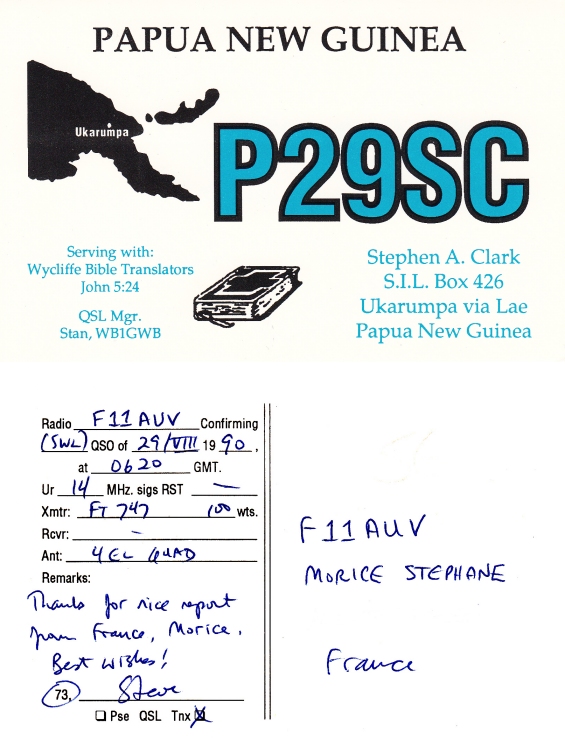 PAPUA NEW GUINEA
Ukarumpa
P29SC
Serving with:
Wycliffe Bible Translators
John 5:24
QSL Mgr.
Stan, WB1GWB
Stephen A. Clark
S.I.L. Box 426
Ukarumpa via Lae
Papua New Guinea
Radio F11AUV Confirming
(SWL) QSO of 29/VIII 1990,
at 0620 GMT.
Ur 14 MHz. sigs RST —
Xmtr: FT 747 100 wts.
Rcvr: -
Ant: 4 EL QUAD
Remarks:
Thanks for nice report
from France, Morice.
Best wishes!
73, Steve
Pse QSL Tnx
F11AUV
MORICE STEPHANE
France